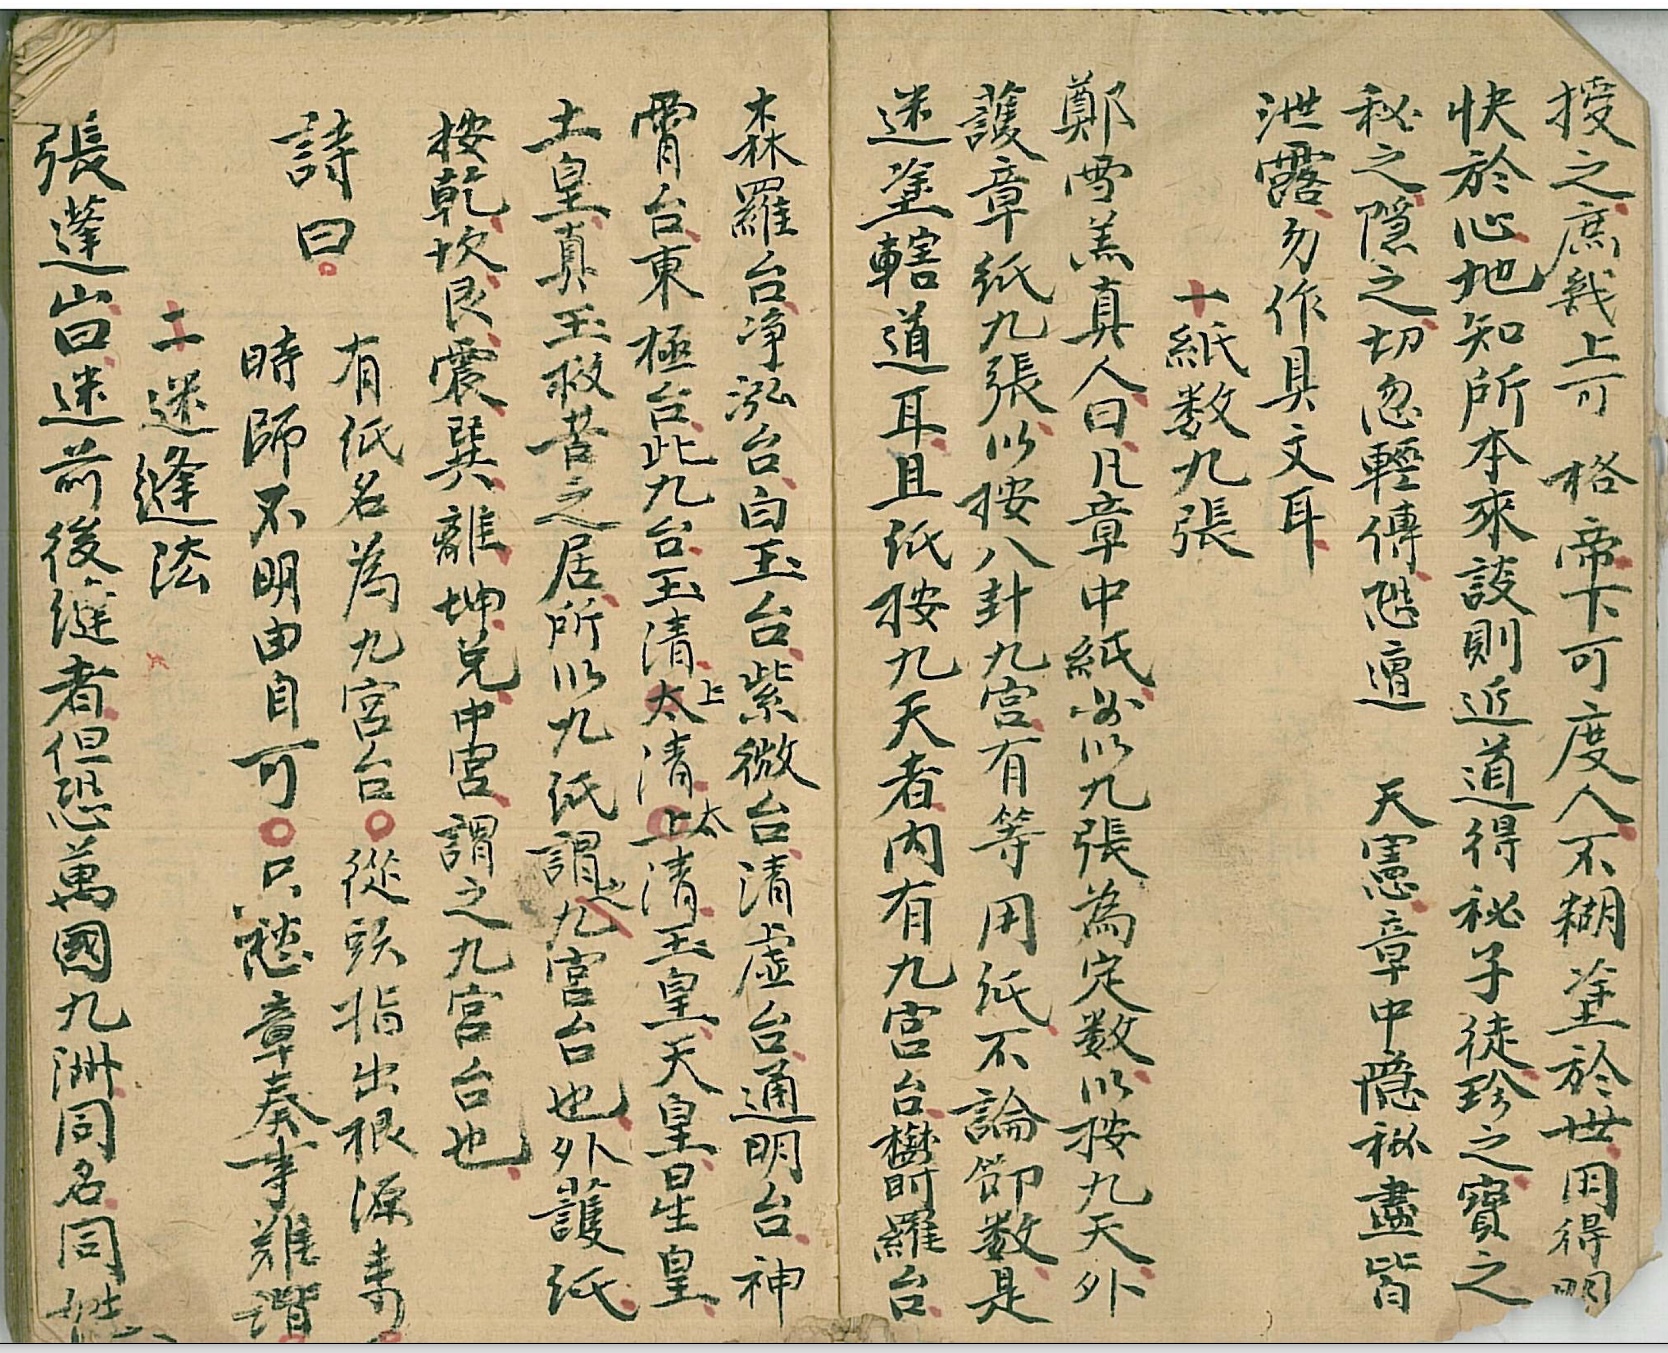 授之庶幾上可格帝下可度人不糊塗於世因得明
快於心地知所本來談則近道得秘子徒珍之寶之
秘之隱之切忽輕傳恐遭天憲章中隱秘盡皆
泄露勿作具文耳
一紙数九張
鄭雪羔真人曰凡章中紙必以九張為定数以按九天外
護章紙九張以按八卦九宫有等用紙不論節数是
迷塗轄道耳且紙按九天者内有九宫台欝羅台
森羅台净泓台白玉台紫微台清虛台通明台神
霄台東極台此九台玉清上太清太上清玉皇天皇星皇
土皇真王救苦之居所以九紙謂之九宫台也外護紙
按乾坎艮震巽離坤兑中宫謂之九宫台也
詩曰
有紙名為九宮台從頭指出根源來
時師不明由自可只愁章奏事難諧
二迷縫法
張蓬山曰迷前後縫者但恐萬國九洲同名同